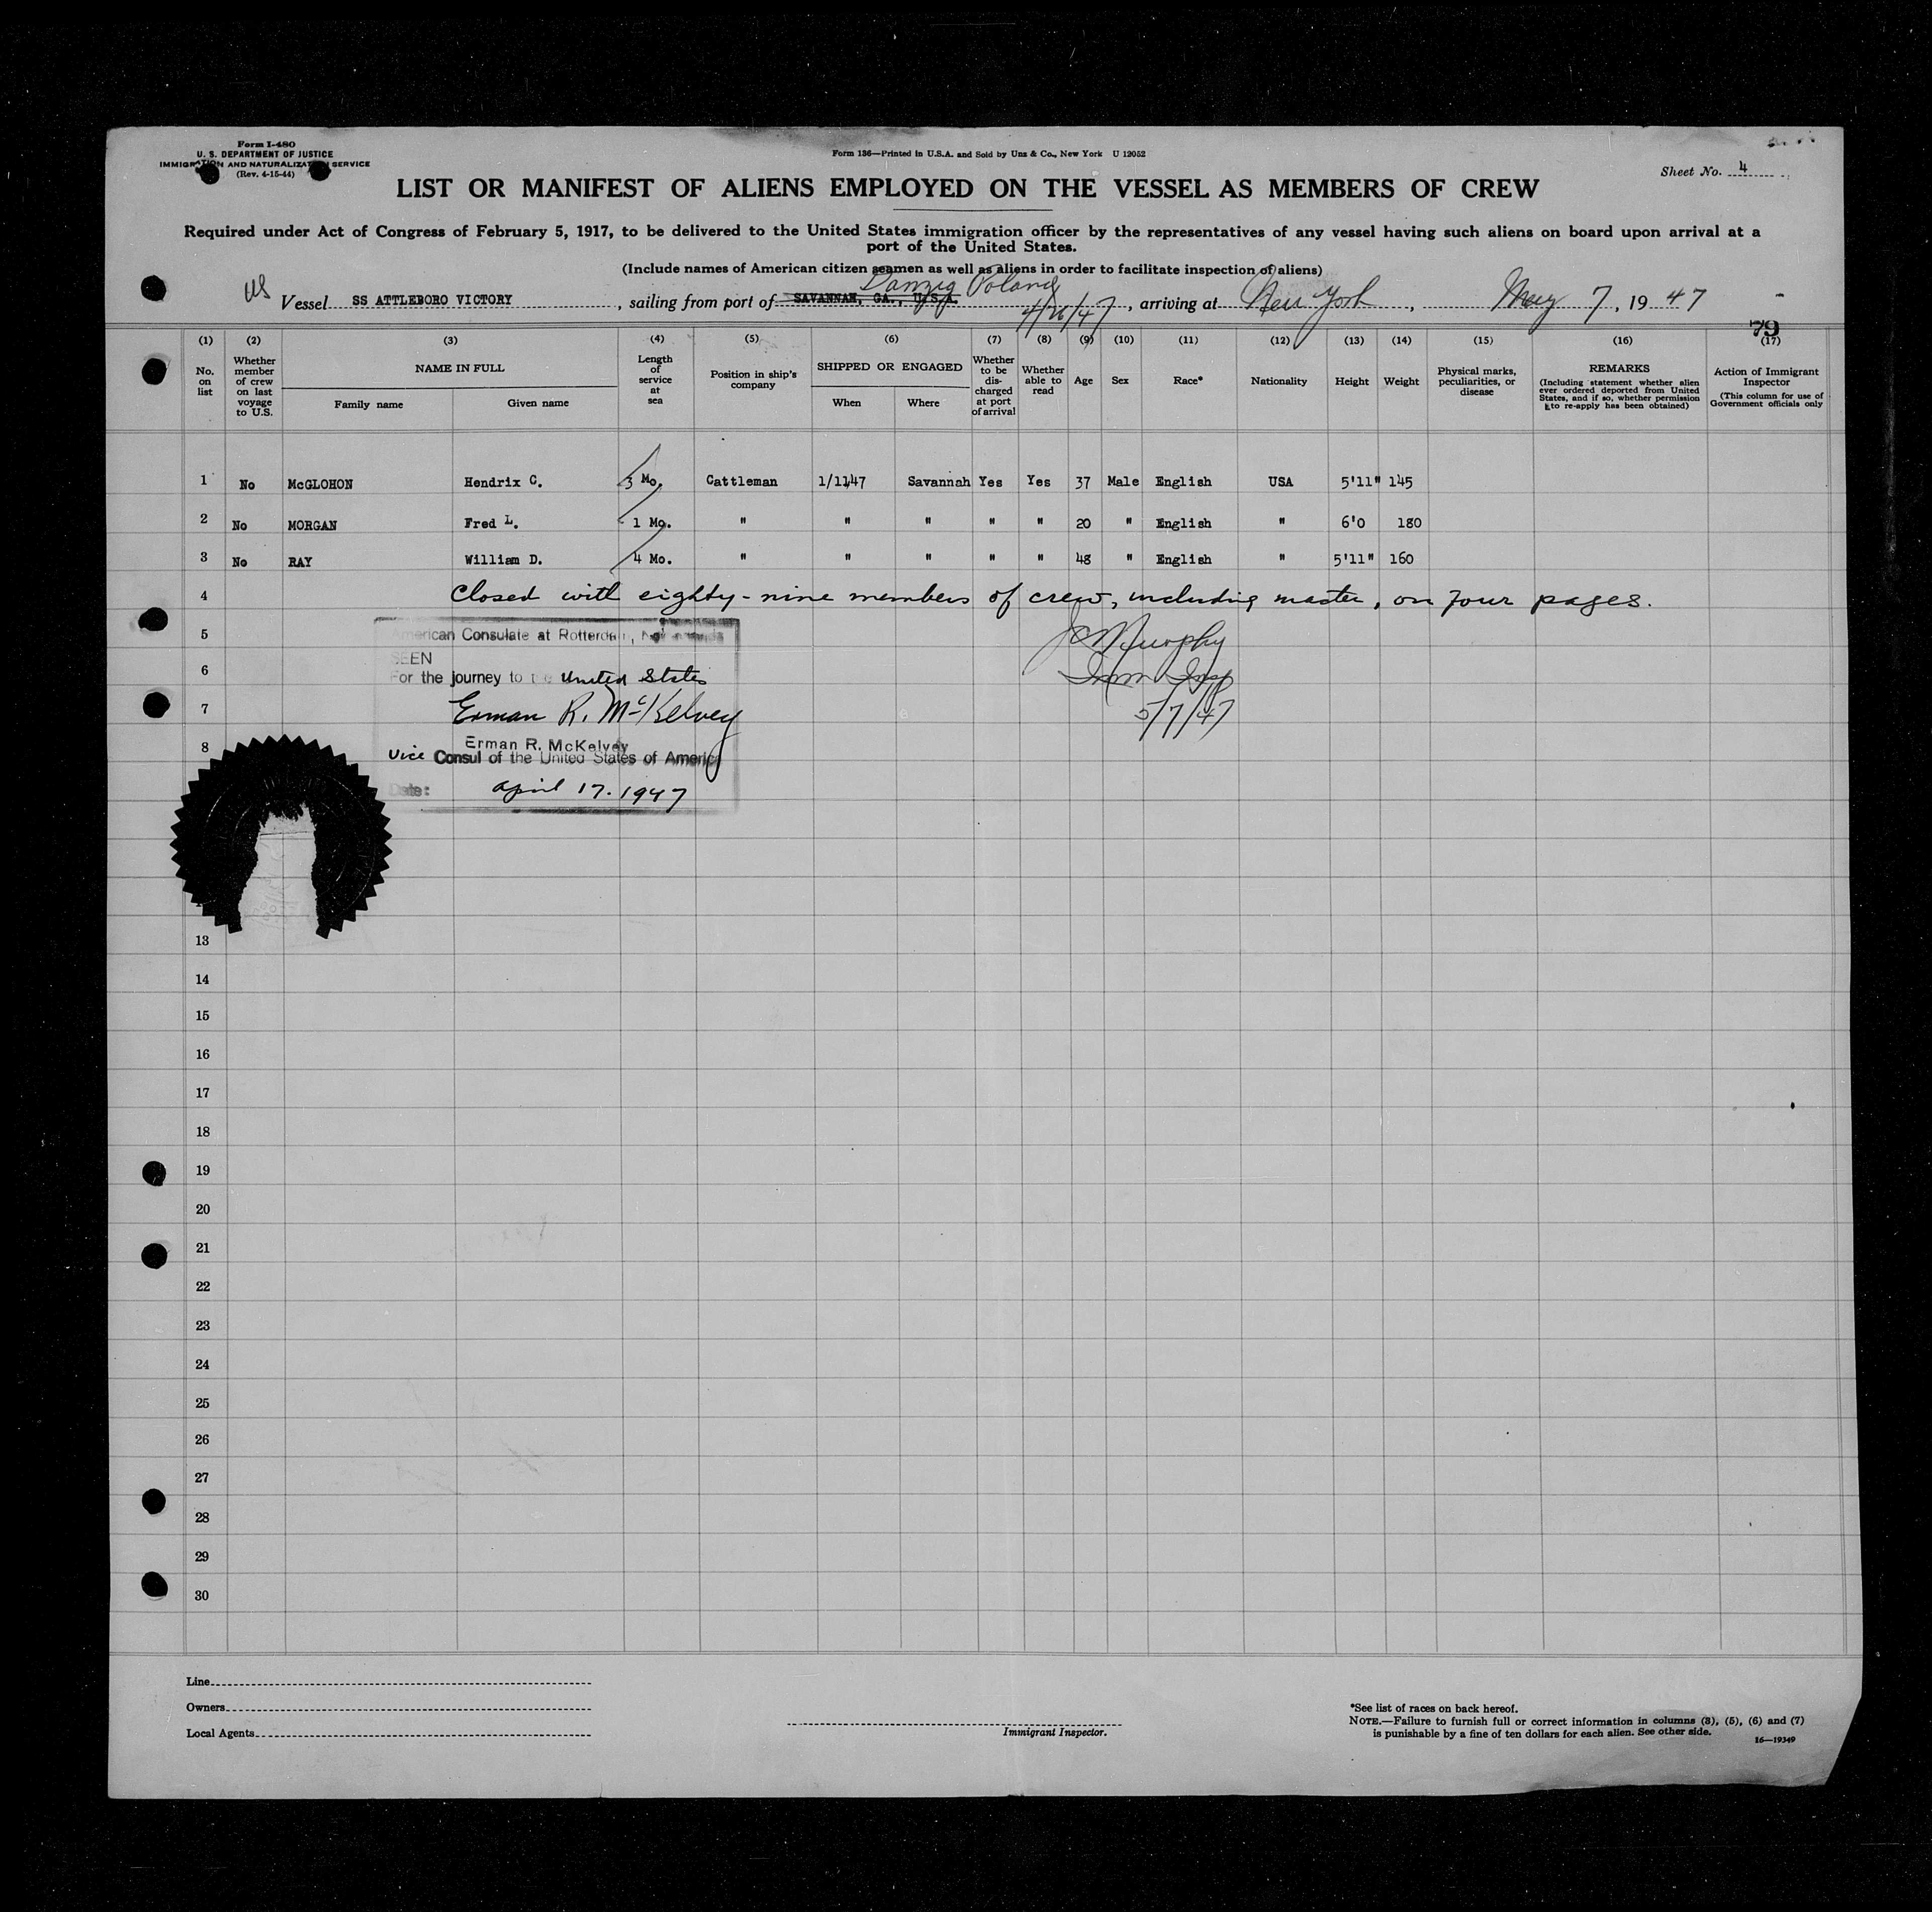 Form I-480
U. S. DEPARTMENT OF JUSTICE
IMMIGRATION AND NATURALIZATION SERVICE
(Rev. 4-15-44)
Form 136—Printed in U.S.A. and Sold by Unz & Co., New York U 12052
Sheet No. 4
LIST OR MANIFEST OF ALIENS EMPLOYED ON THE VESSEL AS MEMBERS OF CREW
Required under Act of Congress of February 5, 1917, to be delivered to the United States immigration officer by the representatives of any vessel having such aliens on board upon arrival at a
port of the United States.
(Include names of American citizen seamen as well as aliens in order to facilitate inspection of aliens)
Danzig Poland
US Vessel SS ATTLEBORO VICTORY, sailing from port of SAVANNAH, GA., U.S.A. 4/26/47, arriving at New York, May 7, 1947
79
(1) (2) (3) (4) (5) (6) (7) (8) (9) (10) (11) (12) (13) (14) (15) (16) (17)
No. on list
Whether member of crew on last voyage to U.S.
NAME IN FULL
Family name Given name
Length of service at sea
Position in ship's company
SHIPPED OR ENGAGED
When Where
Whether to be discharged at port of arrival
Whether able to read
Age
Sex
Race*
Nationality
Height
Weight
Physical marks, peculiarities, or disease
REMARKS
(Including statement whether alien ever ordered deported from United States, and if so, whether permission to re-apply has been obtained)
Action of Immigrant Inspector
(This column for use of Government officials only
1 No McGLOHON Hendrix C. 3 Mo. Cattleman 1/1147 Savannah Yes Yes 37 Male English USA 5'11" 145
2 No MORGAN Fred L. 1 Mo. " " " " " 20 " English " 6'0 180
3 No RAY William D. 4 Mo. " " " " " 48 " English " 5'11" 160
4 Closed with eighty-nine members of crew, including master, on four pages.
5 American Consulate at Rotterdam, JC Murphy
SEEN
6 For the journey to the United States Imm Insp
7 Erman R. McKelvey 5/7/47
8 Erman R. McKelvey
Vice Consul of the United States of America
Date: April 17. 1947
13
14
15
16
17
18
19
20
21
22
23
24
25
26
27
28
29
30
Line
Owners
Local Agents
Immigrant Inspector.
*See list of races on back hereof.
NOTE.—Failure to furnish full or correct information in columns (3), (5), (6) and (7)
is punishable by a fine of ten dollars for each alien. See other side.
16—19349